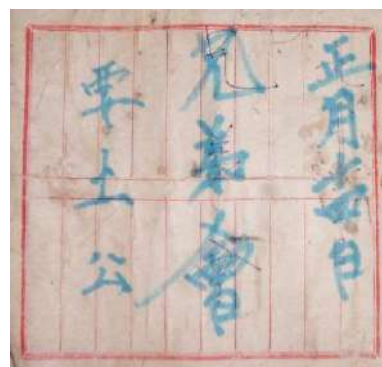 正月吉日
兄弟會
要土公